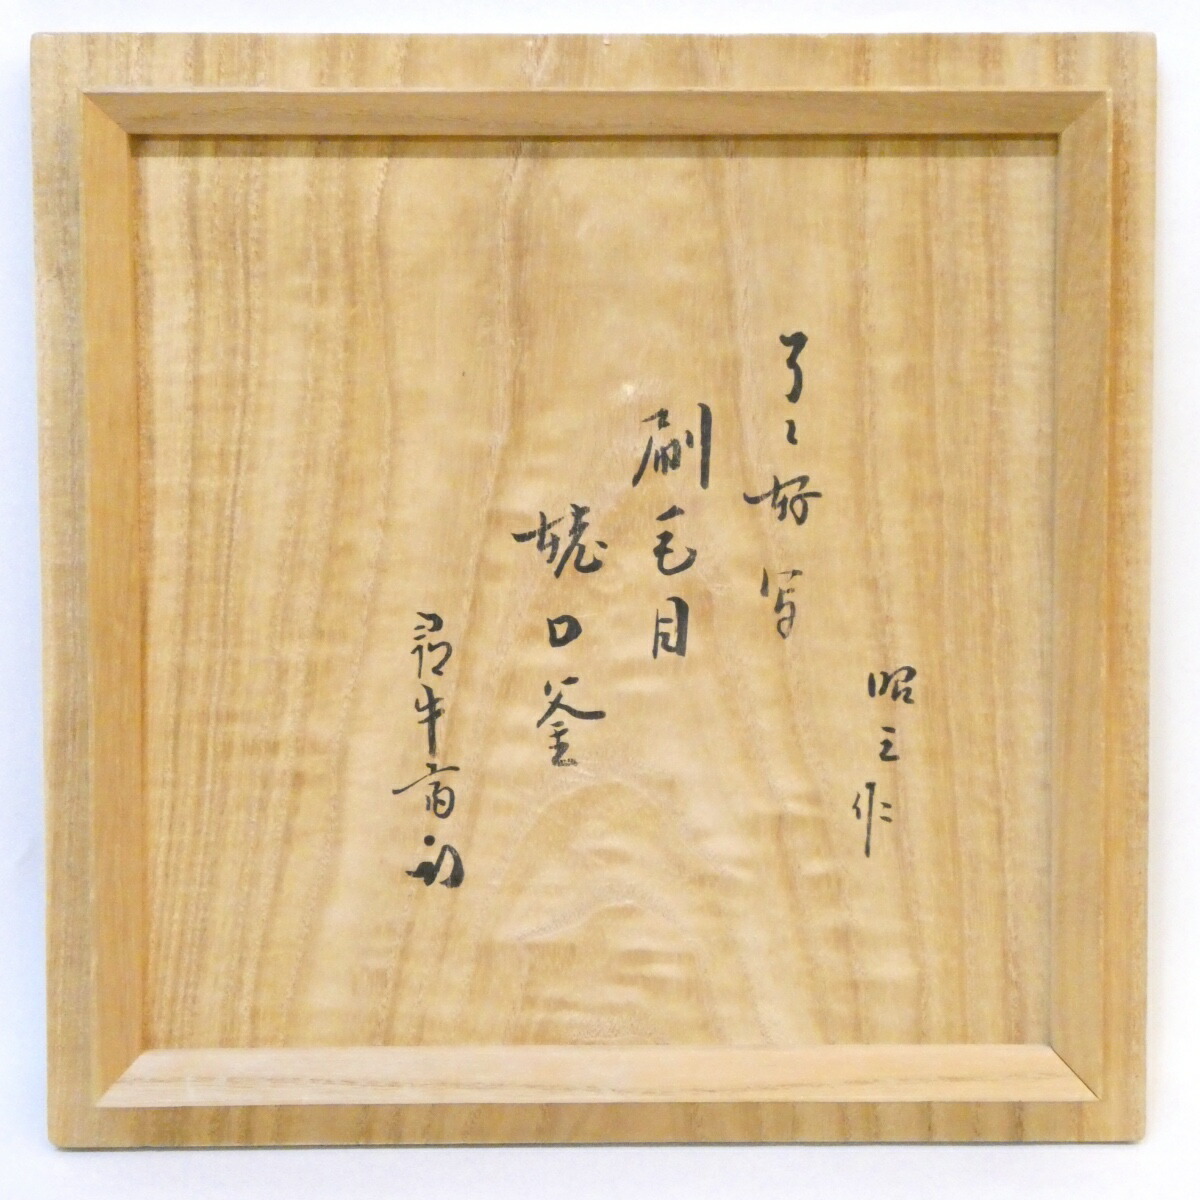 昭三作
了々好写
刷毛目
姥口釜
尋牛斎